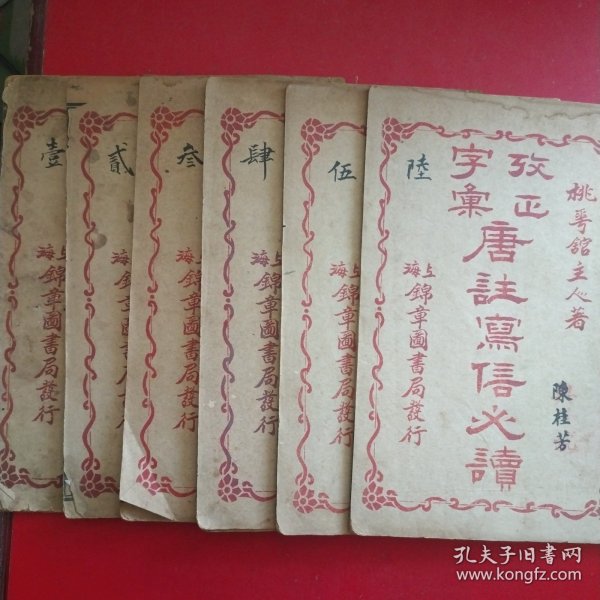 壹
上海
錦章圖書局發行
貳
上海
錦章圖書局發行
叁
上海
錦章圖書局發行
肆
上海
錦章圖書局發行
伍
上海
錦章圖書局發行
桃萼館主人著
攷正
字彙
唐註寫信必讀
陳桂芳
陸
上海
錦章圖書局發行
孔夫子旧书网
www.kongfz.com